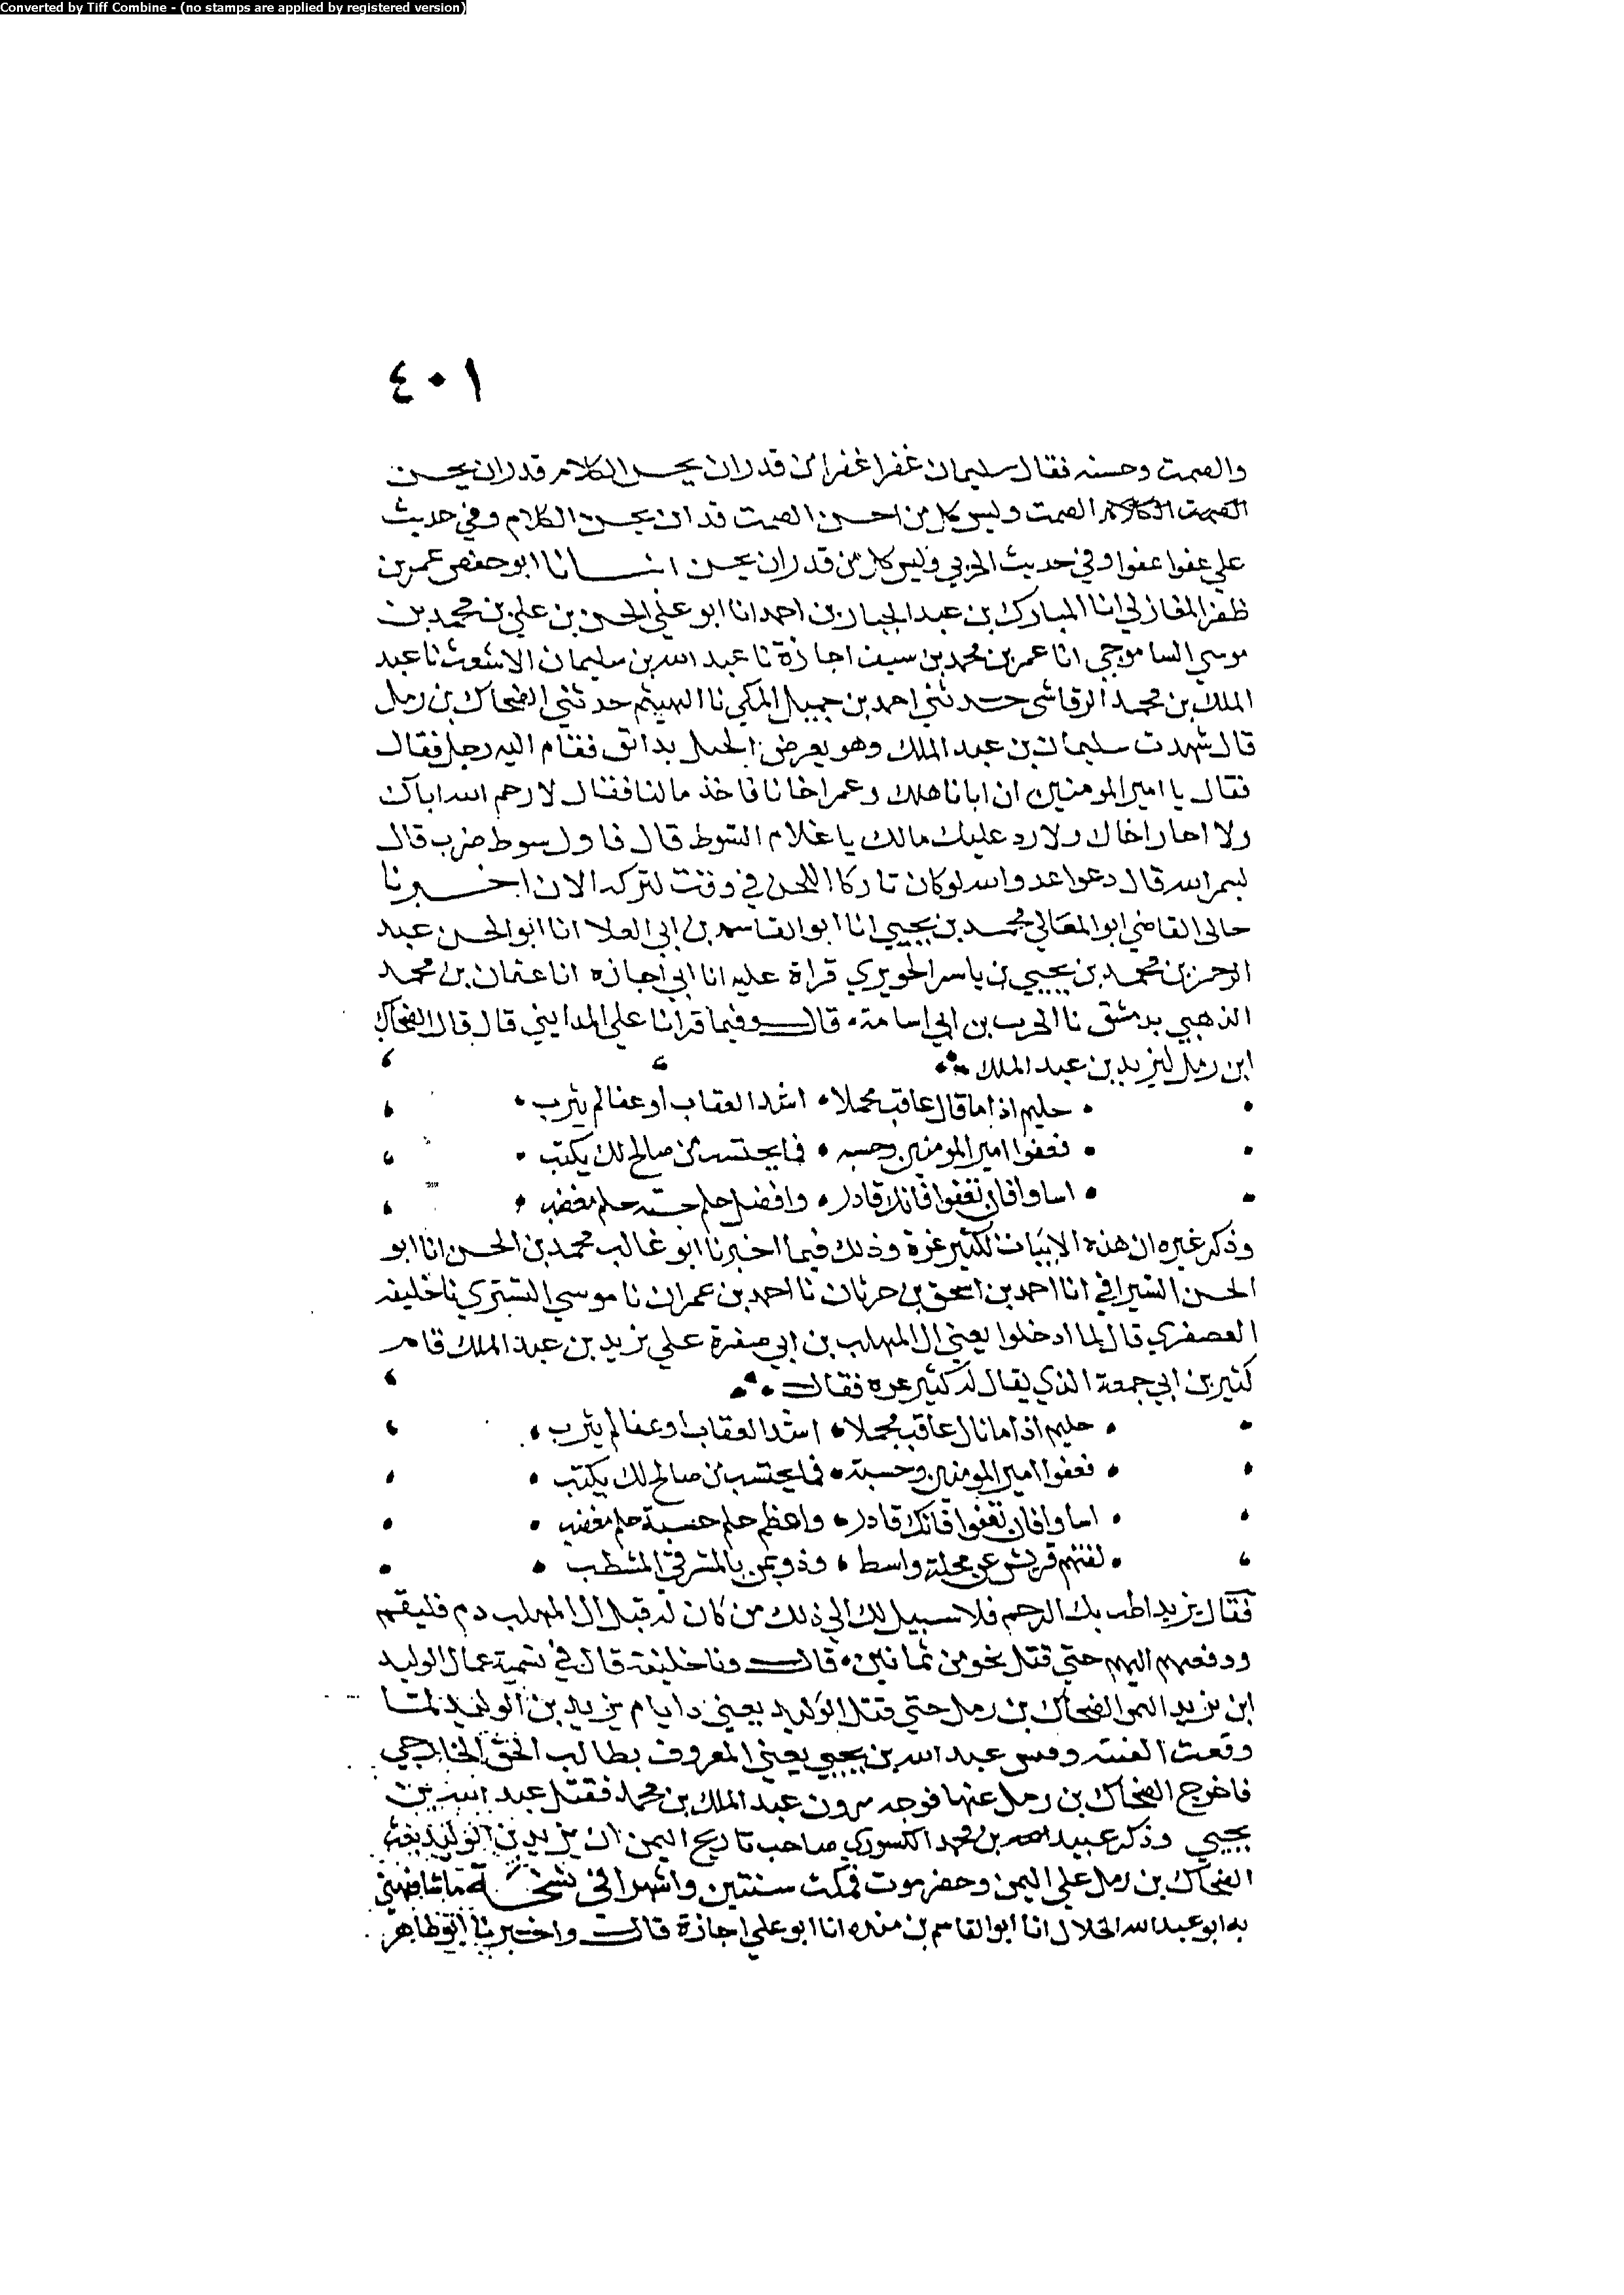 Converted by Tiff Combine - (no stamps are applied by registered version)
٤٠١
والصمت وحسنه فقال سليمان غفرا غفرا من قدر ان يحسن الكلام قدر ان يحسن
الصمت وليس كل من احسن الصمت قد ان يحسن الكلام وفي حديث
علي عفوا عفوا وفي حديث الحربي وليس كل من قدر ان يحسن انبانا ابو حفص عمر بن
ظفر المغازلي انا المبارك بن عبد الجبار بن احمد انا ابو علي الحسن بن علي بن محمد بن
موسي الساموجي انا عمر بن محمد بن سيف اجازة نا عبد الله بن سليمان الاشعث نا عبد
الملك بن محمد الرقاشي حدثني احمد بن جميل المكي نا الهيثم حدثني الضحاك بن رمل
قال شهدت سليمان بن عبد الملك وهو يعرض الخيل بدابق فقام اليه رجل فقال
فقال يا امير المومنين ان ابانا هلك وعمر اخانا فاخذ مالنا فقال لا رحم الله اباك
ولا اخاك ولا رد عليك مالك يا غلام السوط قال فاول سوط ضرب قال
بسم الله قال دعوا عدو الله لو كان تاركا اللحن في وقت لتركه الان اخبرنا
خالي القاضي ابو المعالي محمد بن يحيي انا ابو القاسم بن ابي العلا انا ابو الحسن عبد
الرحمن بن محمد بن يحيي بن ياسر الجوبري قراة عليه انا ابي اجازه انا عثمان بن محمد
الذهبي بدمشق نا الحرب بن ابي اسامة قال وفيما قرانا علي المدايني قال قال الضحاك
ابن رمل ليزيد بن عبد الملك
حليم اذا ما قال عاقب مجملا • اشد العقاب او عفا لم يثرب
فعفوا امير المومنين وحسبه • فما يحتسب من صالح لك يكتب
اساوا فان تعفوا فانك قادر • وافضل حلم حسبه حلم مغضب
وذكر غيره ان هذه الابيات لكثير عزة وذلك فيما اخبرنا ابو غالب محمد بن الحسن انا ابو
الحسن السيرافي انا احمد بن اسحق بن خربان نا احمد بن عمران نا موسي التستري نا خليفه
العصفري قال لما ادخلوا يعني ال المهلب بن ابي صفرة علي يزيد بن عبد الملك قام
كثير بن ابي جمعة الذي يقال له كثير عزه فقال
حليم اذا ما نال عاقب مجملا • اشد العقاب او عفا لم يثرب
فعفوا امير المومنين وحسبة • فما يحتسب من صالح لك يكتب
اساوا فان تعفوا فانك قادر • واعظم حلم حسبة حلم مغضب
نفتهم قريش عن محلة واسط • وذو يمن بالمشرفي المشطب
فقال يزيد اطت بك الرحم فلا سبيل لك الي ذلك من كان له قبل ال المهلب دم فليقم
ودفعهم اليهم حتي قتل نحو من ثمانين • قال ونا خليفة قال في تسمية عمال الوليد
ابن يزيد اليمن الضحاك بن رمل حتي قتل الوليد يعني ايام يزيد بن الوليد لما
وقعت الفتنه عبد الله بن يحيي يعني المعروف بطالب الحق الخارجي
فاخرج الضحاك بن رمل عنها فوجه مرون عبد الملك بن محمد فقتل عبد الله بن
يحيي وذكر عبيد الله بن محمد الكشوري صاحب تاريخ اليمن ان يزيد بن الوليد بعث
الضحاك بن رمل علي اليمن وحضرموت فمكث سنتين واشهرا في نسخة ما شافهني
به ابو عبد الله الخلال انا ابو القاسم بن منده انا ابو علي اجازة قال واخبرنا ابو طاهر